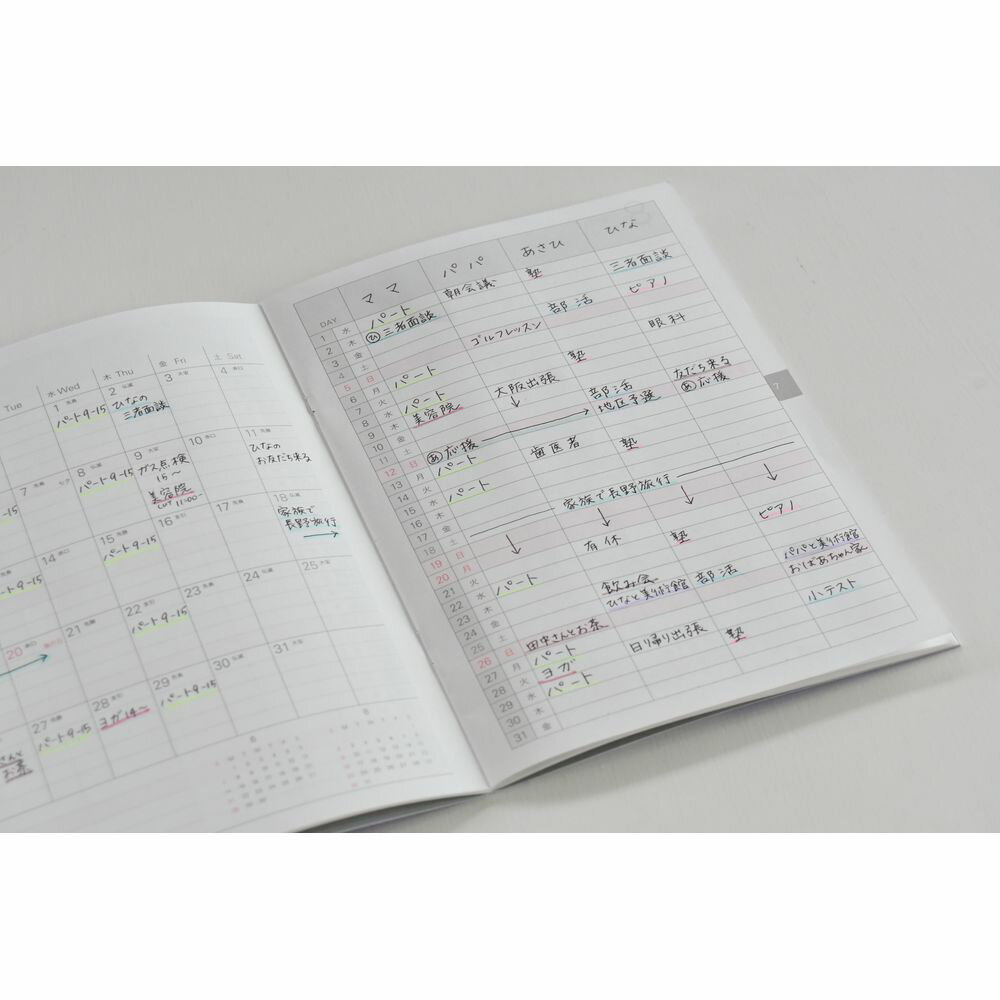 Tue
水 Wed
木 Thu
金 Fri
土 Sat
1 先勝
2 仏滅
3 大安
4 赤口
パート9-15
ひなの
三者面談
7 先勝
8 仏滅
9 大安
10 赤口
11 先勝
パート9-15
ガス点検
15〜
美容院
cut 11:00-
ひなの
お友だち来る
14
15
16
17
18
パート9-15
家族で
長野旅行
20
21
22
23
24
25
パート9-15
27
28
29
30
31
パート9-15
ヨガ14〜
パート9-15
お茶
DAY
ママ
パパ
あさひ
ひな
1 水 パート 朝会議 塾 三者面談
2 木 ひ三者面談
部活
ピアノ
3 金
ゴルフレッスン
4 土
眼科
5 日
6 月 パート
塾
7 火
大阪出張
8 水 パート
部活
友だち来る
9 木 美容院
地区予選
あ応援
10 金
11 土 あ応援
12 日 パート
歯医者
塾
13 月
14 火 パート
15 水
16 木
家族で長野旅行
17 金
18 土
19 日
有休
塾
ピアノ
20 月
21 火 パート
22 水
飲み会
部活
パパと美術館
23 木
ひなと美術館
おばあちゃん家
24 金
小テスト
25 土 田中さんとお茶
26 日 パート
日帰り出張
塾
27 月 ヨガ
28 火 パート
29 水
30 木
31 金
7